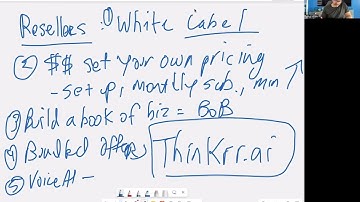 Resellers: ① White Label
② $$ set your own pricing
- set up, monthly sub., min ↑
③ Build a book of biz = BoB
④ Branded offers
Thinkrr.ai
⑤ Voice AI -